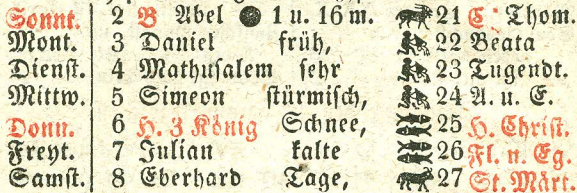 Sonnt. 2 B Abel ● 1 u. 16 m. 21 C Thom.
Mont. 3 Daniel früh, 22 Beata
Dienst. 4 Mathusalem sehr 23 Tugendt.
Mittw. 5 Simeon stürmisch, 24 A. u. E.
Donn. 6 H. 3 König Schnee, 25 H. Christ.
Freyt. 7 Julian kalte 26 Fl. n. Eg.
Samst. 8 Eberhard Tage, 27 St. Märt.